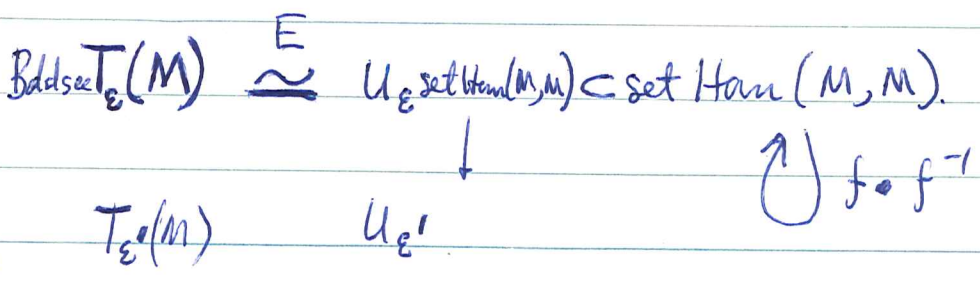 E
Bddsec T_ε(M) ≃ U_ε set Hom(M,M) ⊂ set Hom (M, M).
↓
f • f⁻¹
T_ε'(M) U_ε'